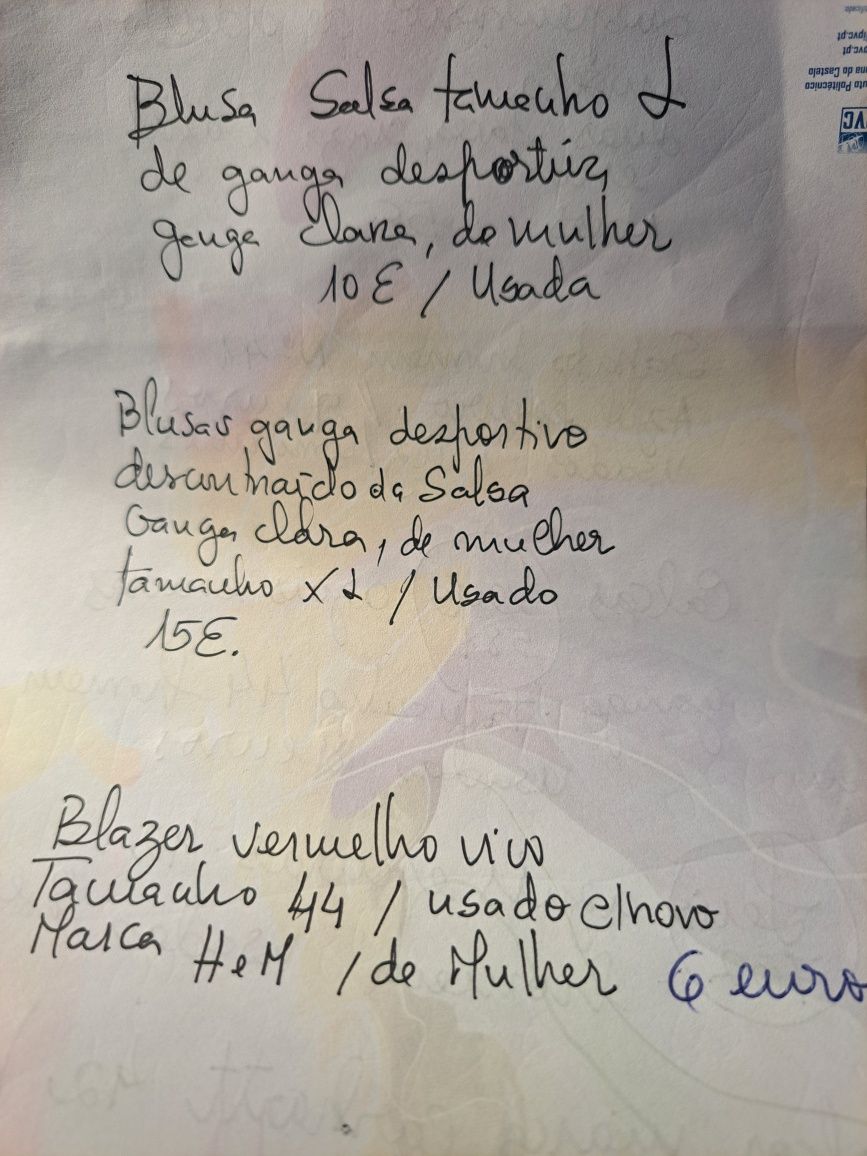 Blusa Salsa tamanho L
de ganga desportiva,
ganga clara, de mulher
10 € / Usada
Blusas ganga desportivo
descontraído da Salsa
Ganga clara, de mulher
tamanho XL / Usado
15€.
Blazer vermelho vivo
Tamanho 44 / usado c/novo
Marca H e M / de Mulher 6 euro
ipvc.pt
Politécnico
do Castelo
VC